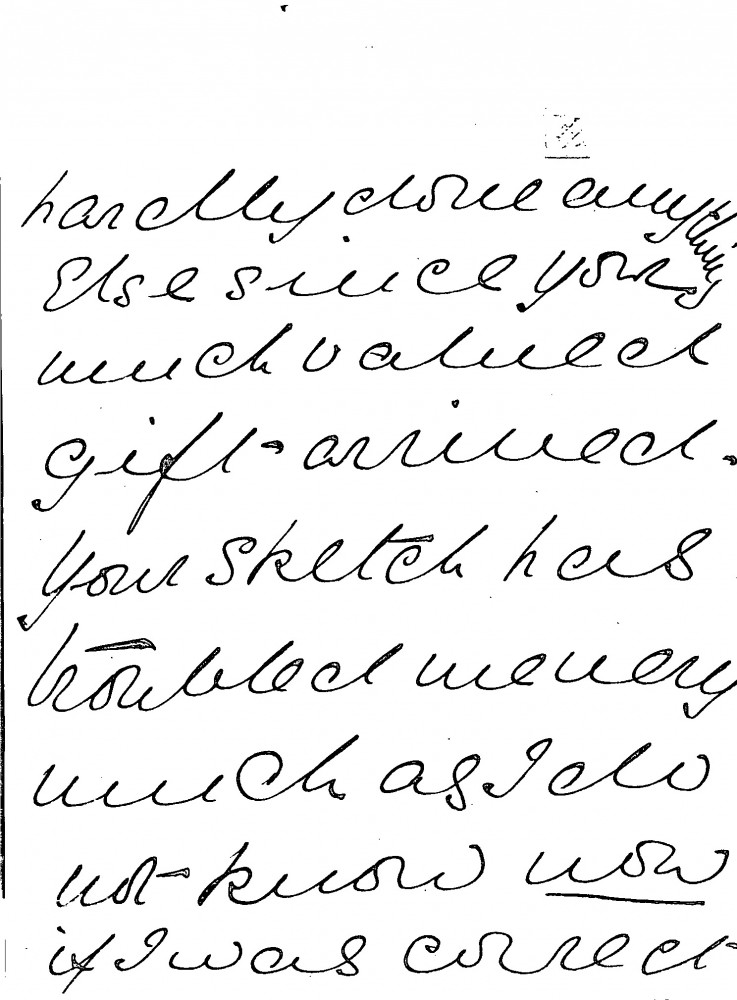 hardly done anything
Else since your
much valued
gift - arrived.
Your Sketch has
troubled me very
much as I do
not know now
if I was correct